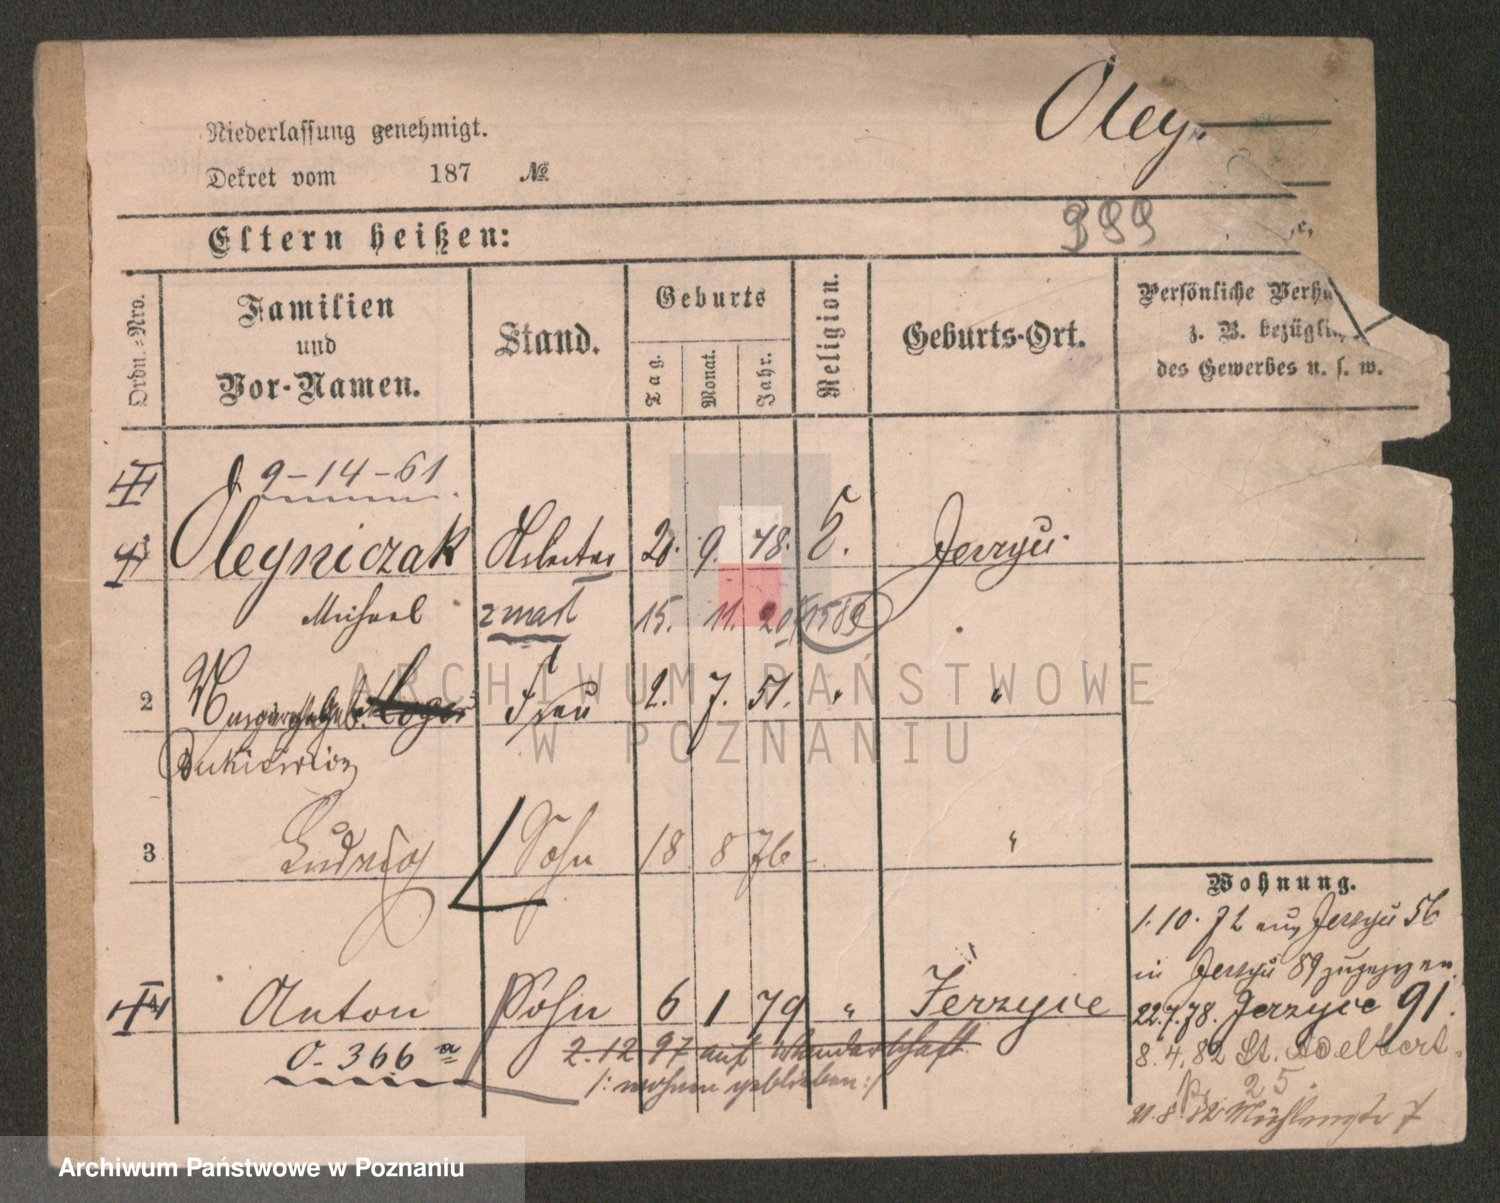 Oley
Niederlassung genehmigt.
Dekret vom 187 №
Eltern heißen:
399
Ordn.-Nro.
Familien
und
Vor-Namen.
Stand.
Geburts
Tag.
Monat.
Jahr.
Religion.
Geburts-Ort.
Persönliche
z. B.
des Gewerbes u. s. w.
9-14-61
Oleyniczak Arbeiter 20. 9. 48. Jerzyce
Michael zmarł 15. 11. 20 1589
2 Frau 2. 7. 51. " "
3 Ludwig Sohn 18 8 76 "
Anton Sohn 6 1 79 " Jerzyce
O. 366 a
2.12 97 auf Wanderschaft
Wohnung.
1. 10. 72 aus Jerzyce 56
in Jerzyce 89 zugezogen
22.7.78. Jerzyce 91.
8. 4. 82 St. Adelbert
25.
21. 8. 82 Mühlenstr 7
ARCHIWUM PAŃSTWOWE
W POZNANIU
Archiwum Państwowe w Poznaniu